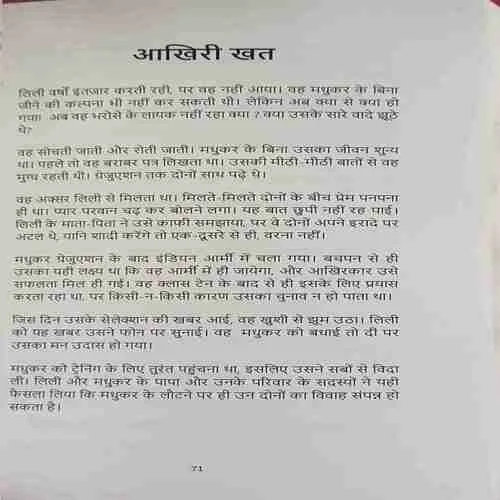 आखिरी खत
लिली वर्षों इंतजार करती रही, पर वह नहीं आया। वह मधुकर के बिना
जीने की कल्पना भी नहीं कर सकती थी। लेकिन अब क्या से क्या हो
गया! अब वह भरोसे के लायक नहीं रहा क्या ? क्या उसके सारे वादे झूठे
थे?
वह सोचती जाती और रोती जाती। मधुकर के बिना उसका जीवन शून्य
था। पहले तो वह बराबर पत्र लिखता था। उसकी मीठी-मीठी बातों से वह
मुग्ध रहती थी। ग्रेजुएशन तक दोनों साथ पढ़े थे।
वह अक्सर लिली से मिलता था। मिलते-मिलते दोनों के बीच प्रेम पनपना
ही था। प्यार परवान चढ़ कर बोलने लगा। यह बात छुपी नहीं रह पाई।
लिली के माता-पिता ने उसे काफी समझाया, पर वे दोनों अपने इरादे पर
अटल थे, यानि शादी करेंगे तो एक-दूसरे से ही, वरना नहीं।
मधुकर ग्रेजुएशन के बाद इंडियन आर्मी में चला गया। बचपन से ही
उसका यही लक्ष्य था कि वह आर्मी में ही जायेगा, और आखिरकार उसे
सफलता मिल ही गई। वह क्लास टेन के बाद से ही इसके लिए प्रयास
करता रहा था, पर किसी-न-किसी कारण उसका चुनाव न हो पाता था।
जिस दिन उसके सेलेक्शन की खबर आई, वह खुशी से झूम उठा। लिली
को यह खबर उसने फोन पर सुनाई। वह मधुकर को बधाई तो दी पर
उसका मन उदास हो गया।
मधुकर को ट्रेनिंग के लिए तुरंत पहुंचना था, इसलिए उसने सबों से विदा
ली। लिली और मधुकर के पापा और उनके परिवार के सदस्यों ने यही
फैसला लिया कि मधुकर के लौटने पर ही उन दोनों का विवाह संपन्न हो
सकता है।
71